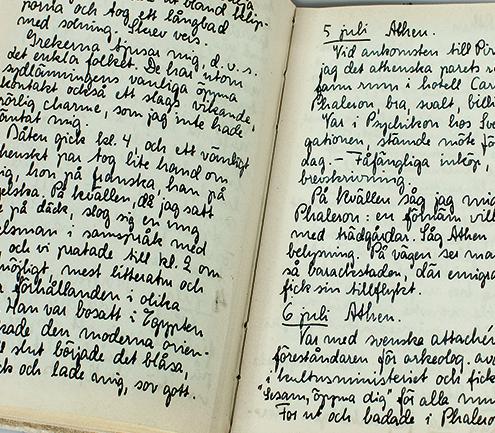 porta och tog ett långbad
med solning. Skrev vers.
Grekerna tjusar mig, d.v.s.
det enkla folket. De har utom
sydlänningens vanliga öppna
kontakt också ett slags vikande,
charme, som jag inte hade
väntat mig.
Båten gick kl. 4, och ett vänligt
par tog lite hand om
mig, hon på franska, han på
engelska. På kvällen, då jag satt
på däck, slog sig en ung
i samspråk med
och vi pratade till kl. 2 om
möjligt, mest litteratur och
förhållanden i olika
Han var bosatt i Egypten
den moderna orien-
slut började det blåsa,
och lade mig, sov gott.
5 juli Athen.
Vid ankomsten till Pir
jag det athenska parets r
fann rum i hotell Car
Phaleron, bra, svalt, billi
Var i Psychikon hos Sve
gationen, stämde möte fö
dag. – Fåfängliga inköp,
brevskrivning.
På kvällen såg jag mig
Phaleron: en förnäm vill
med trädgårdar. Låg Athen
belysning. På vägen ser man
så barackstaden, där emigra
fick sin tillflykt.
6 juli Athen.
Var med svenske attachén
föreståndaren för arkeolog. av
i kulturministeriet och fick
"Sesam, öppna dig" för alla mu
For ut och badade i Phaleron